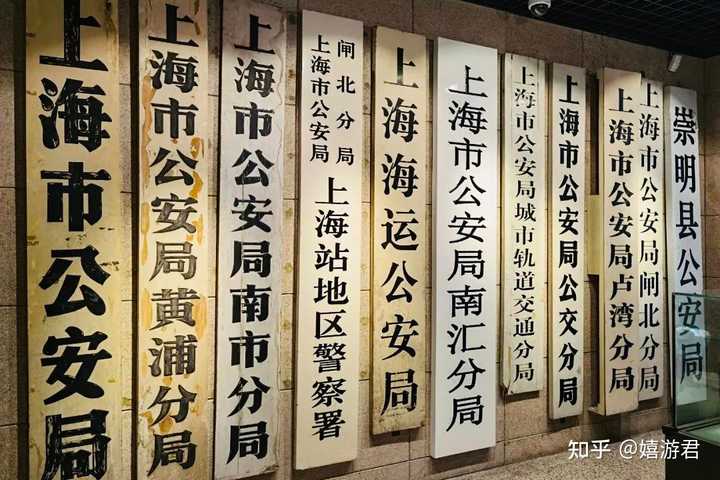 上海市公安局
上海市公安局黄浦分局
上海市公安局南市分局
上海市公安局
闸北分局
上海站地区警察署
上海海运公安局
上海市公安局南汇分局
上海市公安局城市轨道交通分局
上海市公安局公交分局
上海市公安局卢湾分局
上海市公安局闸北分局
崇明县公安局
知乎 @嬉游君